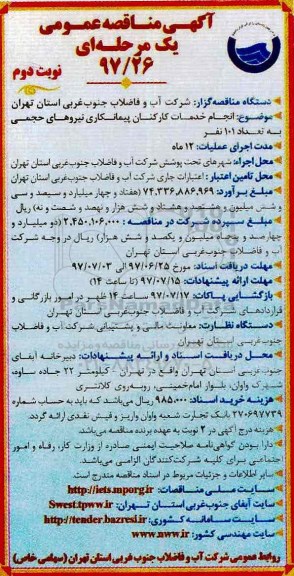 آگهی مناقصه عمومی
یک مرحله‌ای
۹۷/۲۶
نوبت دوم
دستگاه مناقصه‌گزار: شرکت آب و فاضلاب جنوب‌غربی استان تهران
موضوع: انجام خدمات کارکنان پیمانکاری نیروهای حجمی
به تعداد ۱۰۱ نفر
مدت اجرای عملیات: ۱۲ ماه
محل اجراء: شهرهای تحت پوشش شرکت آب و فاضلاب جنوب‌غربی استان تهران
محل تامین اعتبار: اعتبارات جاری شرکت آب و فاضلاب جنوب‌غربی استان تهران
مبلغ برآورد: ۷۴,۳۳۶,۸۸۶,۹۶۹ (هفتاد و چهار میلیارد و سیصد و سی
و شش میلیون و هشتصد و هشتاد و شش هزار و نهصد و شصت و نه) ریال
مبلغ سپرده شرکت در مناقصه: ۲,۴۵۰,۱۰۶,۰۰۰ (دو میلیارد و
چهارصد و پنجاه میلیون و یکصد و شش هزار) ریال در وجه شرکت
آب و فاضلاب جنوب‌غربی استان تهران
مهلت دریافت اسناد: مورخ ۹۷/۰۶/۲۵ الی ۹۷/۰۷/۰۳
مهلت ارائه پیشنهادات: ۹۷/۰۷/۱۵ (تا ساعت ۱۴)
بازگشایی پاکات: ۹۷/۰۷/۱۷ ساعت ۱۴ ظهر در امور بازرگانی و
قراردادهای شرکت آب و فاضلاب جنوب‌غربی استان تهران
دستگاه نظارت: معاونت مالی و پشتیبانی شرکت آب و فاضلاب
جنوب‌غربی استان تهران
محل دریافت اسناد و ارائه پیشنهادات: دبیرخانه آبفای
جنوب‌غربی استان تهران واقع در کیلومتر ۲۲ جاده ساوه،
شهرک واوان، بلوار امام‌خمینی، روبه‌روی کلانتری
هزینه خرید اسناد: ۹۸۵,۰۰۰ ریال می‌باشد که باید به حساب شماره
۲۷۰۶۹۷۷۳۹ بانک تجارت شعبه واوان واریز و فیش نقدی ارائه گردد.
هزینه درج آگهی در ۲ نوبت به عهده برنده مناقصه می‌باشد.
دارا بودن گواهی‌نامه صلاحیت ایمنی صادره از وزارت کار، رفاه و امور
اجتماعی برای کلیه شرکت‌کنندگان الزامی می‌باشد.
سایر اطلاعات و جزئیات مربوط در اسناد مناقصه مندرج است.
سایت ملی مناقصات: http://iets.mporg.ir
سایت آبفای جنوب‌غربی استان تهران: Swest.tpww.ir
سایت سامانه کشوری: http://tender.bazresi.ir
سایت مهندسی کشور: www.nww.ir
روابط عمومی شرکت آب و فاضلاب جنوب غربی استان تهران (سهامی خاص)